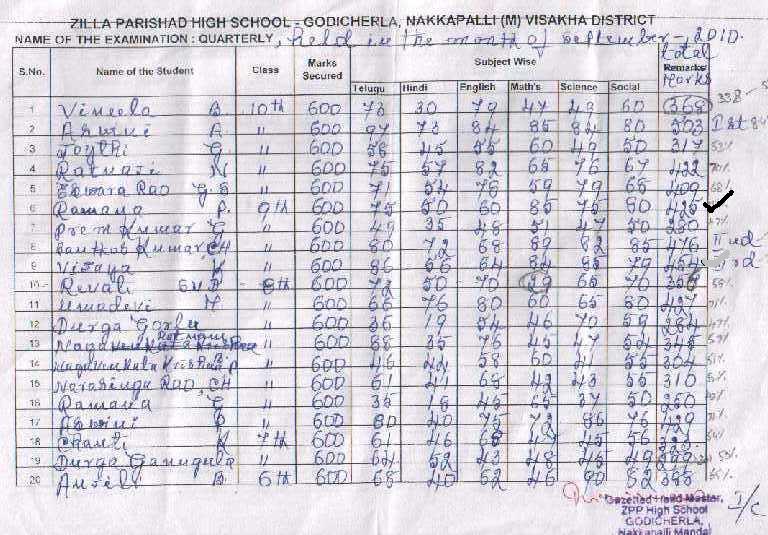 ZILLA PARISHAD HIGH SCHOOL - GODICHERLA, NAKKAPALLI (M) VISAKHA DISTRICT
NAME OF THE EXAMINATION : QUARTERLY, held in the month of september - 2010.
S.No. Name of the Student Class Marks Secured Subject Wise total Remarks Marks
Telugu Hindi English Math's Science Social
1 Vineela B. 10th 600 73 30 79 47 49 60 368 338
2 Aswini A. " 600 97 73 84 85 84 80 503 Ist
3 Joythi G. " 600 58 45 55 60 49 50 317 53%
4 Ratnaji N " 600 75 57 82 65 76 67 422 70%
5 Eswara Rao G.S " 600 71 54 76 59 79 65 409 68%
6 Ramana P. 9th 600 75 50 60 85 75 80 425
7 Prem Kumar G " 600 49 35 48 51 47 50 280 47%
8 Santhosh Kumar, CH " 600 80 72 68 89 82 85 476 IInd
9 Vijaya K " 600 86 66 64 84 85 79 454 rd
10 Revati G.V.P. 8th 600 72 50 70 29 65 70 356 59%
11 Umadevi Y " 600 66 76 80 60 65 80 427 71%
12 Durga " 600 36 19 54 46 70 59 284 47%
13 " 600 88 35 76 45 47 54 345
14 " 600 46 44 58 60 41 55 304 51%
15 Narasinga Rao, CH " 600 61 41 68 42 43 55 310 51%
16 Ramana G " 600 35 18 45 65 37 50 250
17 Aswini P " 600 80 40 75 72 86 76 429 71%
18 Chanti K 7th 600 61 46 68 49 45 56
19 Durga Ganugula " 600 64 52 43 48 45 49
20 Anjali B. 6th 600 68 40 62 46 90 82
Gazetted Head Master, I/C
ZPP High School
GODICHERLA,
Nakkapalli Mandal